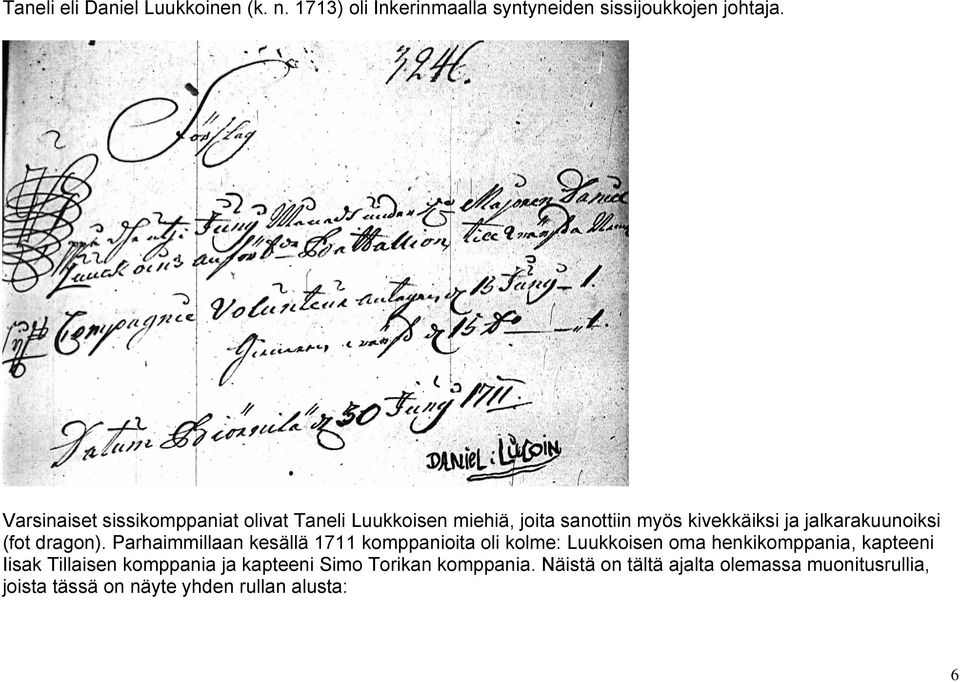 Taneli eli Daniel Luukkoinen (k. n. 1713) oli Inkerinmaalla syntyneiden sissijoukkojen johtaja.
3246.
Förslag
Juny Månads under Majoren Daniel
Luuckoins Battallion, till
Compagnie Volunteur d 13 Juny – 1.
d 15 do — 1.
Datum Biörnila d 30 Juny 1711.
DANIEL : LUCOIN
Varsinaiset sissikomppaniat olivat Taneli Luukkoisen miehiä, joita sanottiin myös kivekkäiksi ja jalkarakuunoiksi
(fot dragon). Parhaimmillaan kesällä 1711 komppanioita oli kolme: Luukkoisen oma henkikomppania, kapteeni
Iisak Tillaisen komppania ja kapteeni Simo Torikan komppania. Näistä on tältä ajalta olemassa muonitusrullia,
joista tässä on näyte yhden rullan alusta:
6